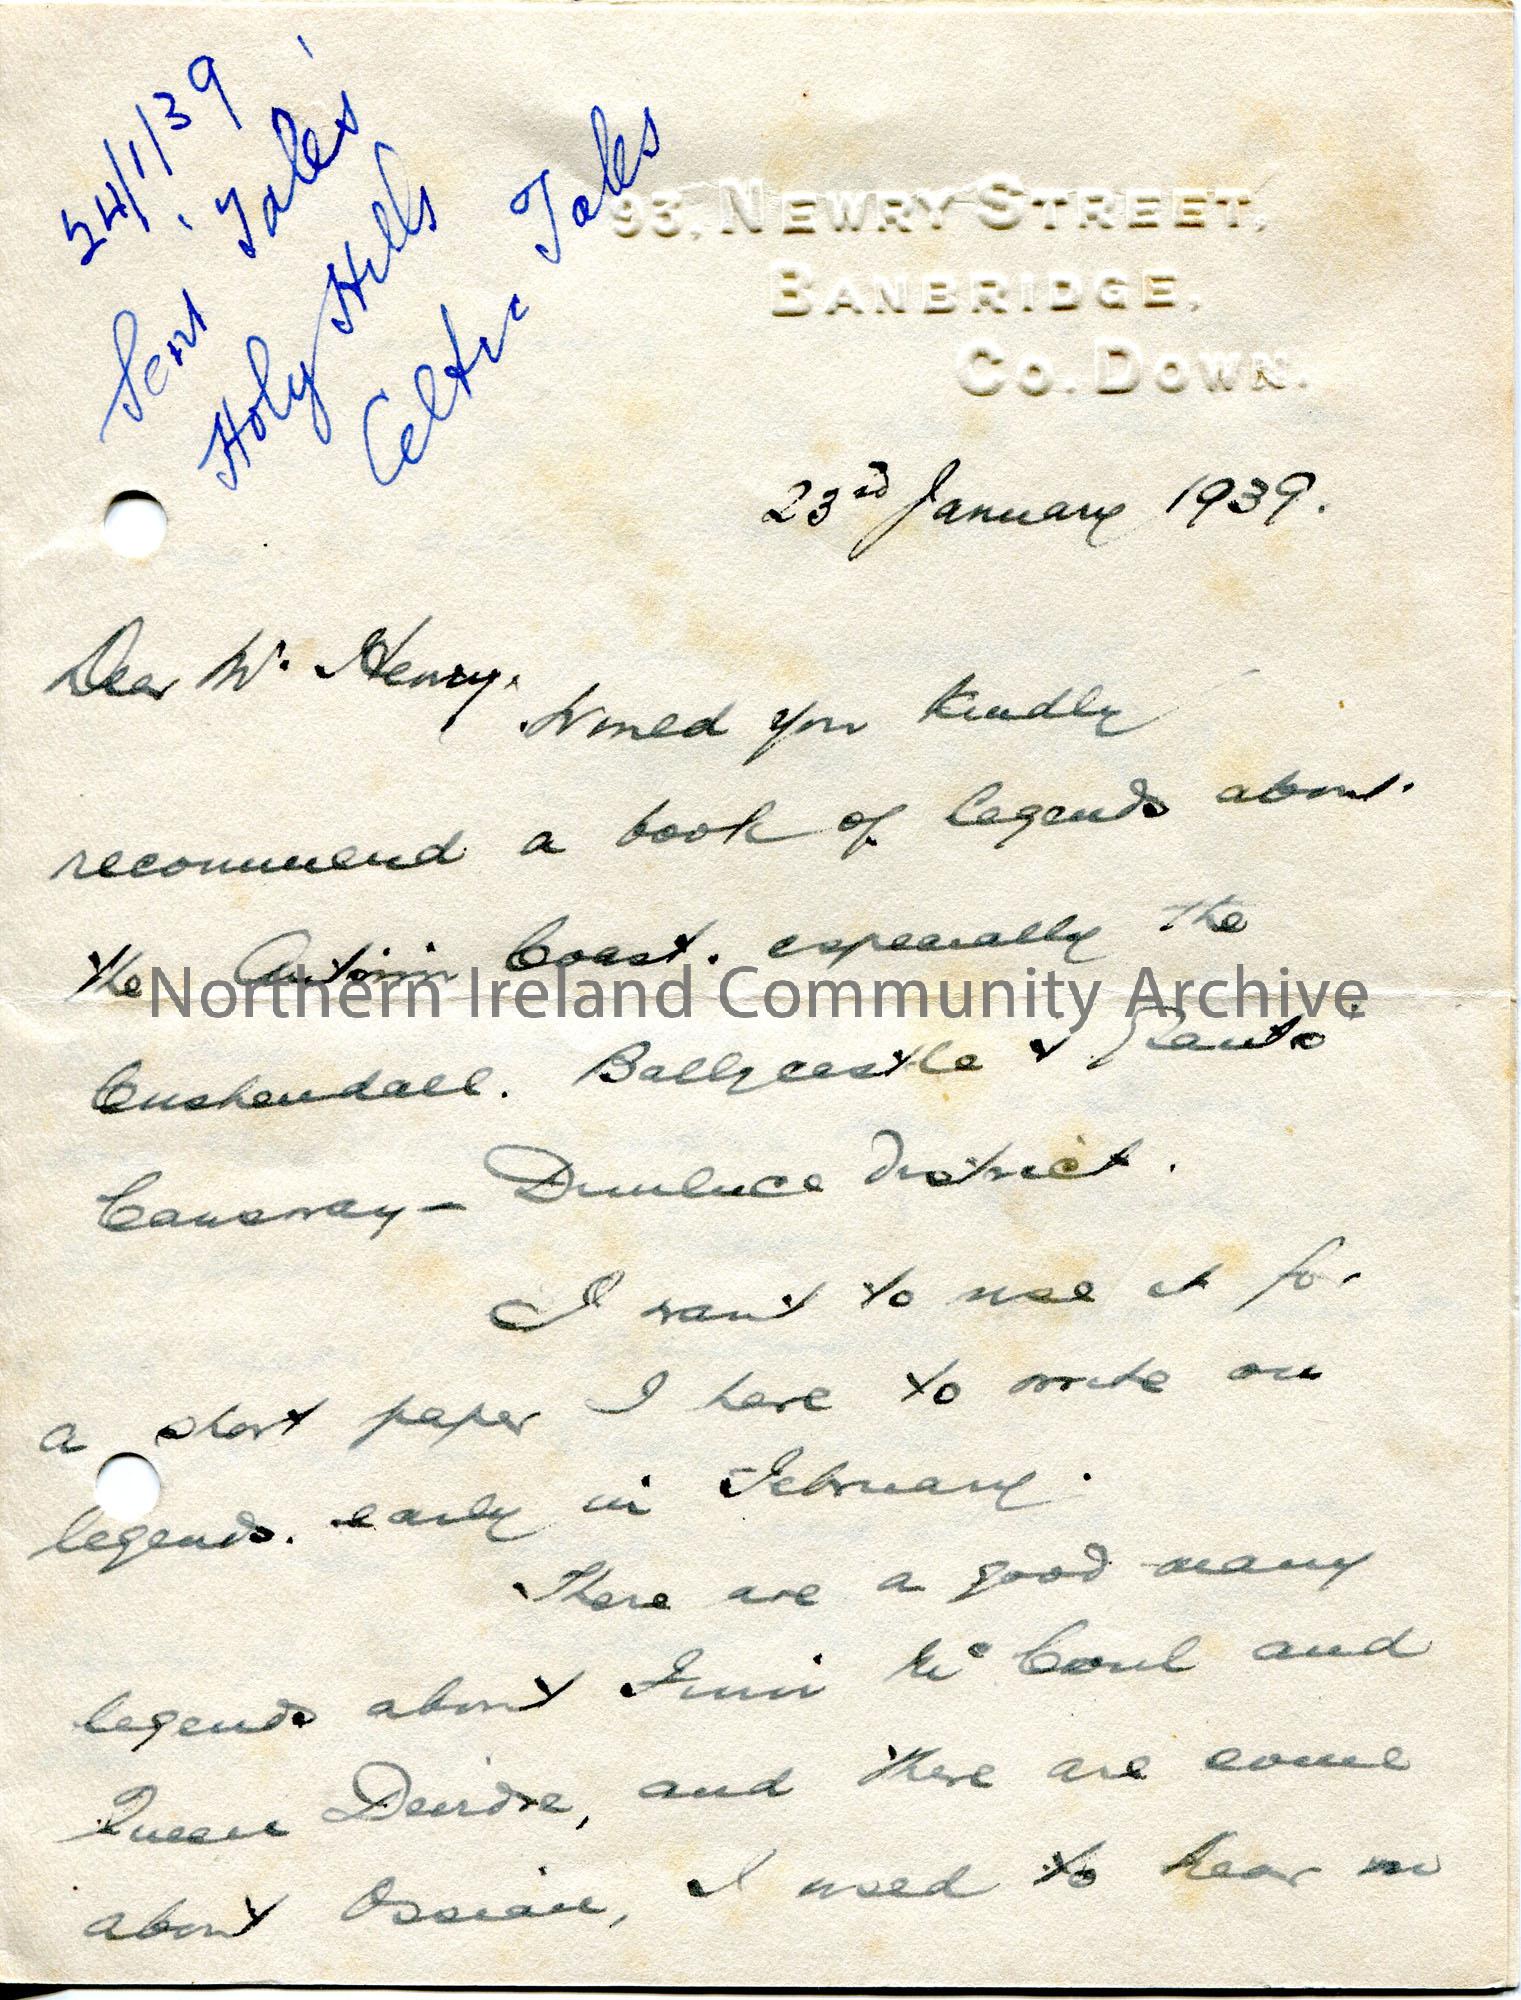 24/1/39
Sent Tales
Holy Hills
Celtic Tales
93, NEWRY STREET,
BANBRIDGE,
CO. DOWN.
23rd January 1939.
Dear Mr. Henry,
Would you kindly
recommend a book of legends about
the Antrim Coast, especially the
Northern Ireland Community Archive
Cushendall, Ballycastle & Giants
Causeway - Dunluce district.
I want to use it for
a short paper I have to write on
legends, early in February.
There are a good many
legends about Finn McCoul and
Queen Deirdre, and there are some
about Ossian, I used to hear